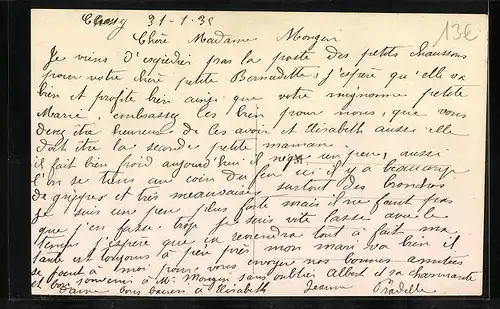 31-1-3
13€
Chère Madame Mongin
Je viens d'expédier par la poste des petits chaussons
pour votre chère petite Bernadette, j'espère qu'elle va
bien et profite bien ainsi que votre mignonne petite
Marie, embrassez les bien pour nous, que vous
devez être heureux de les avoir et Elisabeth aussi elle
doit être la seconde petite maman.
il fait bien froid aujourd'hui il neige un peu, aussi
l'on se tiens au coin du feu ici il y a beaucoup
de grippes et très mauvaises surtout des bronches
Je suis un peu plus forte mais il ne faut pas
que j'en fasse trop je suis vite lasse avec le
temps j'espère que ça reviendra tout à fait ma
santé est toujours à peu près mon mari va bien il
se joint à moi pour vous envoyer nos bonnes amitiés
et bon souvenir à Mr Mongin sans oublier Albert et sa charmante
dame bons baisers à Elisabeth Jeanne Pradelle